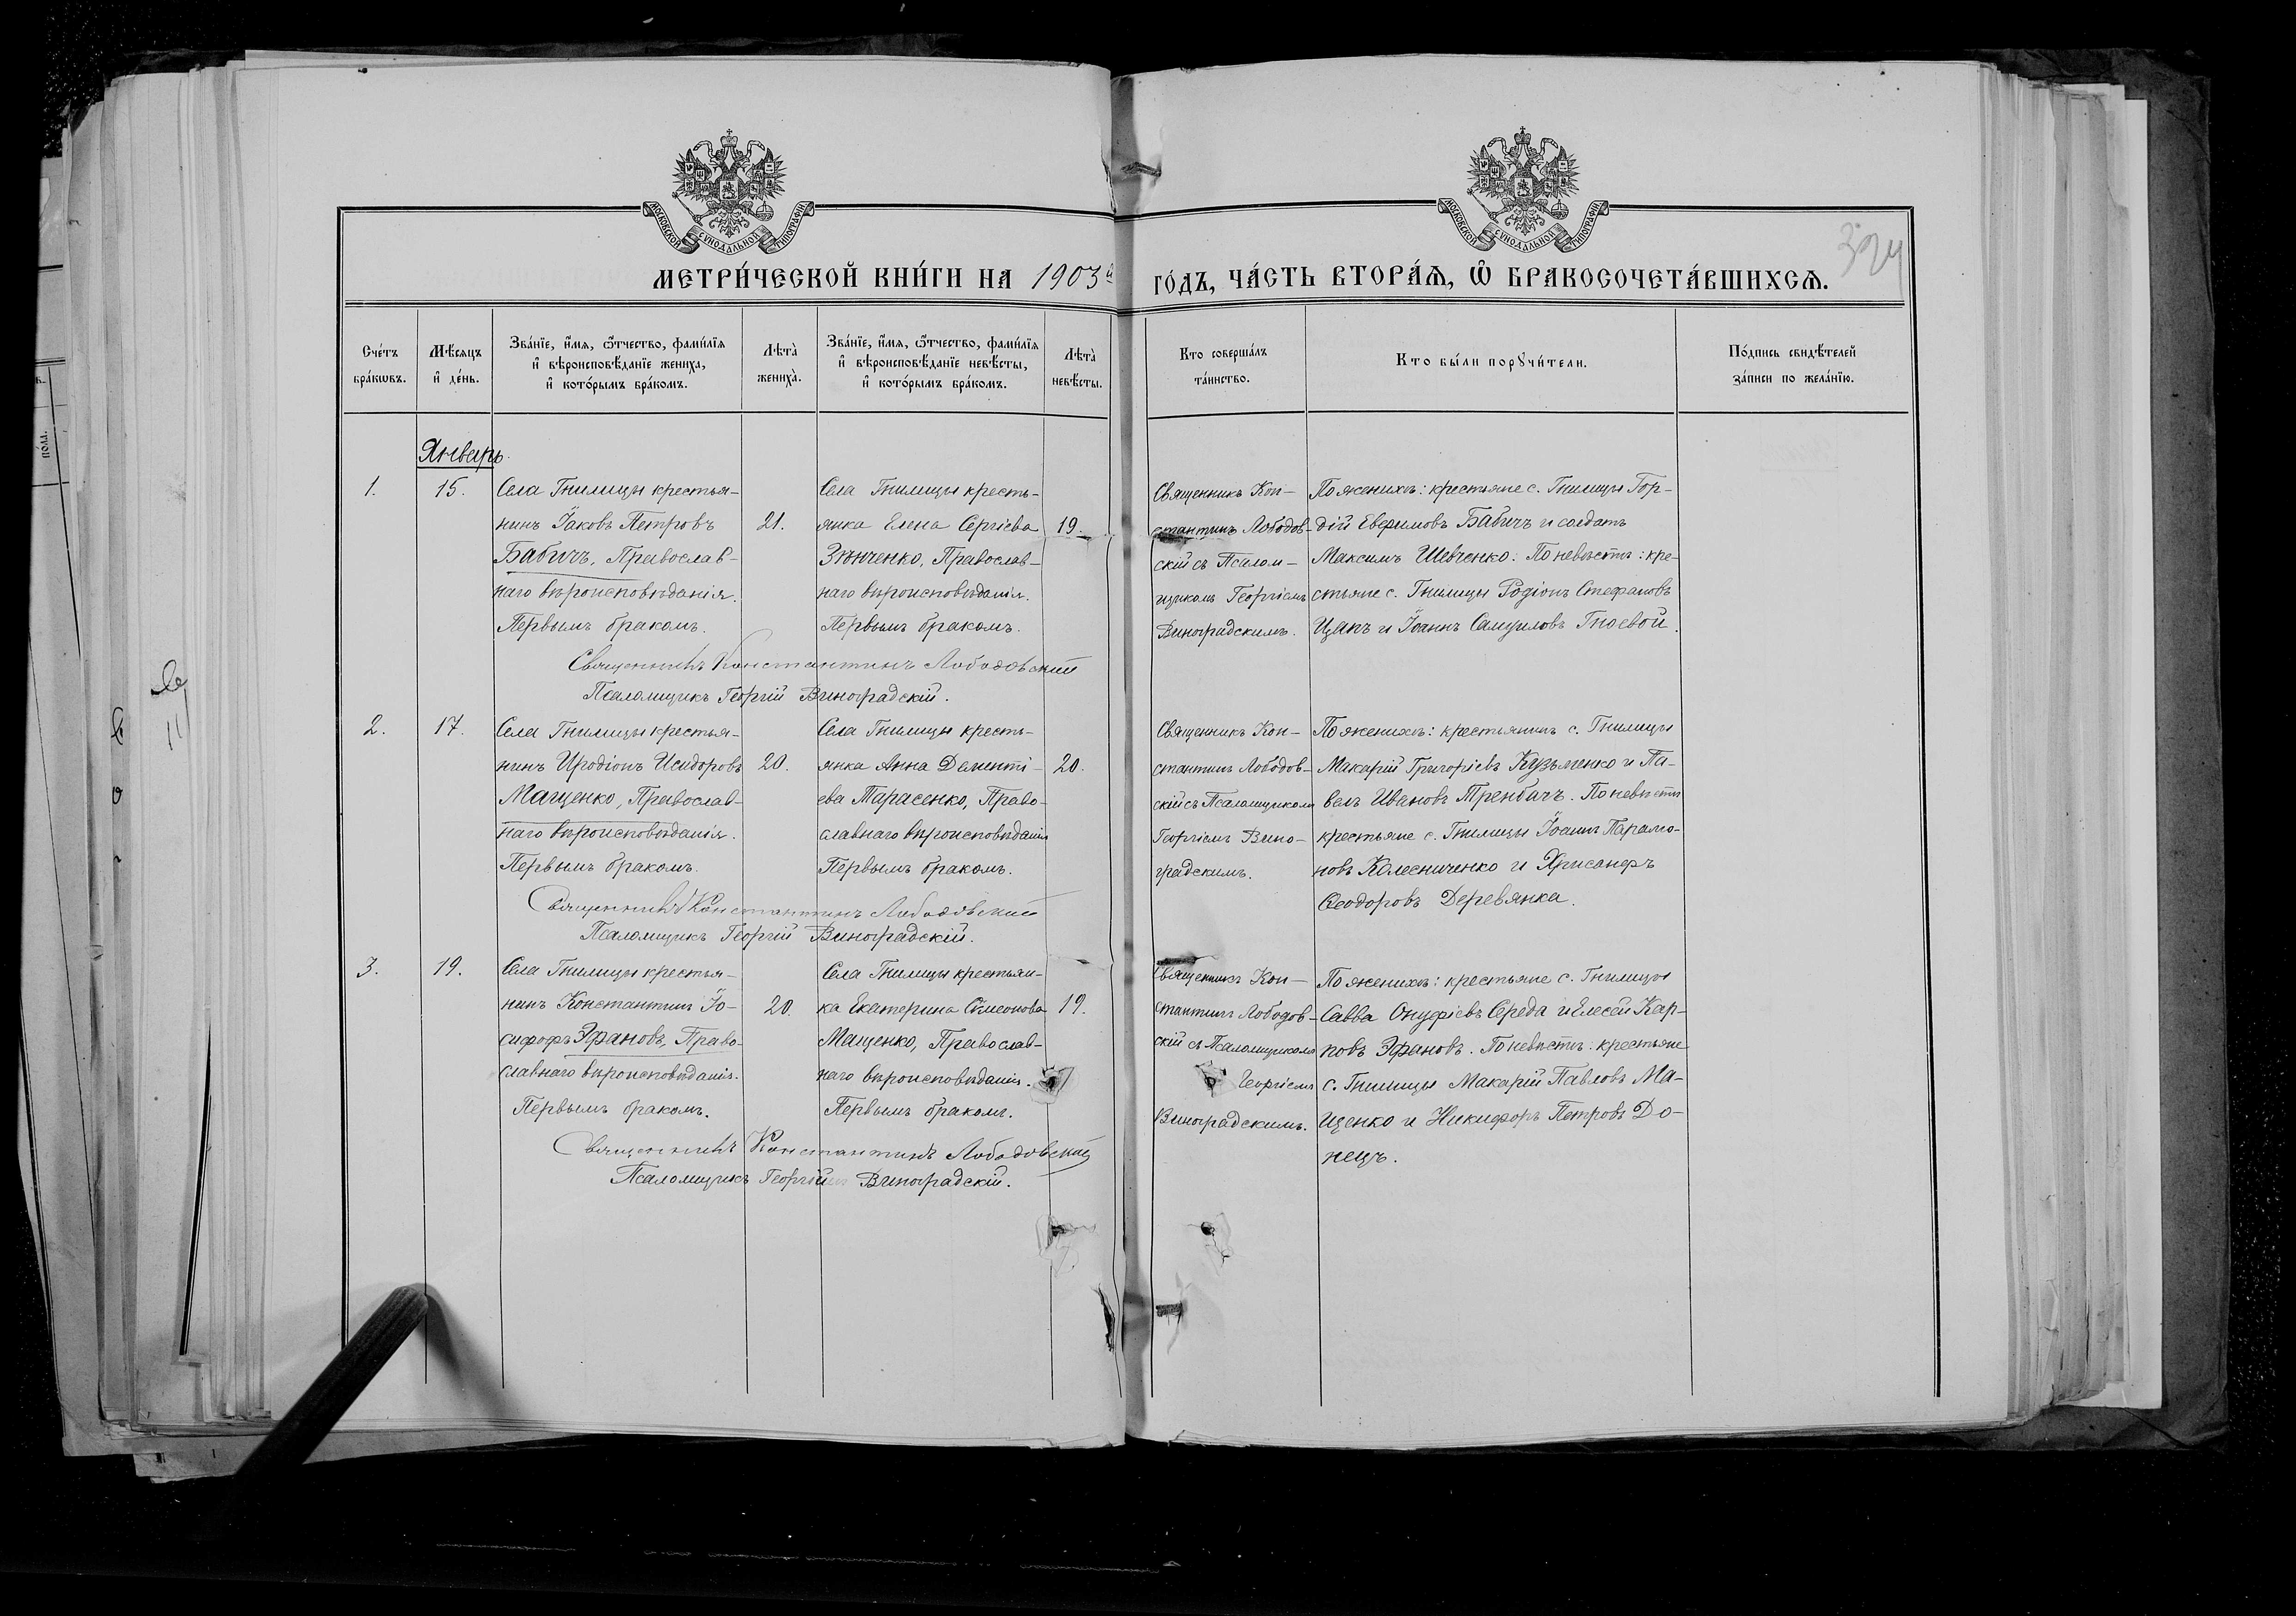 МОСКОВСКОЙ СУНОДАЛЬНОЙ ТИПОГРАФІИ
МОСКОВСКОЙ СУНОДАЛЬНОЙ ТИПОГРАФІИ
МЕТРИ́ЧЕСКОЙ КНИ́ГИ НА 1903й ГО́ДЪ, ЧА́СТЬ ВТОРА́Ѧ, Ѽ БРАКОСОЧЕТА́ВШИХСѦ.
Сче́тъ бра́кѡвъ.
Мѣ́сяцъ и҆ де́нь.
Зва́нїе, и҆́мя, ѻ҆́тчество, фами́лїя
и҆ вѣроисповѣ́данїе жениха̀,
и҆ кото́рымъ бра́комъ.
Лѣта̀ жениха̀.
Зва́нїе, и҆́мя, ѻ҆́тчество, фами́лїя
и҆ вѣроисповѣ́данїе невѣ́сты,
и҆ кото́рымъ бра́комъ.
Лѣта̀ невѣ́сты.
Кто соверша́лъ та́инство.
Кто бы́ли порꙋчи́тели.
По́дпись свидѣ́телей
за́писи по жела́нїю.
Январь.
1.
15.
Села Гнилицы крестья-
нинъ Іаковъ Петровъ
Бабичъ, Православ-
наго вѣроисповѣданія.
Первымъ бракомъ.
21.
Села Гнилицы кресть-
янка Елена Сергіева
Зѣнченко, Православ-
наго вѣроисповѣданія.
Первымъ бракомъ.
19.
Священникъ Кон-
стантинъ Лободов-
скій съ Псалом-
щикомъ Георгіемъ
Виноградскимъ.
По женихѣ: крестьяне с. Гнилицы Гор-
дій Евфимовъ Бабичъ и солдатъ
Максимъ Шевченко. По невѣстѣ: кре-
стьяне с. Гнилицы Родіонъ Стефановъ
Цапъ и Іоаннъ Самуиловъ Гноевой.
Священникъ Константинъ Лободовскій
Псаломщикъ Георгій Виноградскій.
2.
17.
Села Гнилицы крестья-
нинъ Иродіонъ Исидоровъ
Мащенко, Православ-
наго вѣроисповѣданія.
Первымъ бракомъ.
20.
Села Гнилицы кресть-
янка Анна Дементі-
ева Тарасенко, Право-
славнаго вѣроисповѣданія
Первымъ бракомъ.
20.
Священникъ Кон-
стантинъ Лободов-
скій съ Псаломщикомъ
Георгіемъ Вино-
градскимъ.
По женихѣ: крестьянинъ с. Гнилицы
Макарій Григоріевъ Кузьменко и Па-
велъ Ивановъ Тренбачъ. По невѣстѣ
крестьяне с. Гнилицы Іоаннъ Парамо-
новъ Колесниченко и Хрисанфъ
Ѳеодоровъ Деревянка.
Священникъ Константинъ Лободовскій
Псаломщикъ Георгій Виноградскій.
3.
19.
Села Гнилицы крестья-
нинъ Константинъ Іо-
сифовъ Эфановъ, Право-
славнаго вѣроисповѣданія.
Первымъ бракомъ.
20.
Села Гнилицы крестьян-
ка Екатерина Сѵмеонова
Мащенко, Православ-
наго вѣроисповѣданія.
Первымъ бракомъ.
19.
Священникъ Кон-
стантинъ Лободов-
скій съ Псаломщикомъ
Георгіемъ
Виноградскимъ.
По женихѣ: крестьяне с. Гнилицы
Савва Онуфріевъ Середа и Елесей Кар-
повъ Эфановъ. По невѣстѣ: крестьяне
с. Гнилицы Макарій Павловъ Ма-
щенко и Никифоръ Петровъ До-
нецъ.
Священникъ Константинъ Лободовскій
Псаломщикъ Георгій Виноградскій.